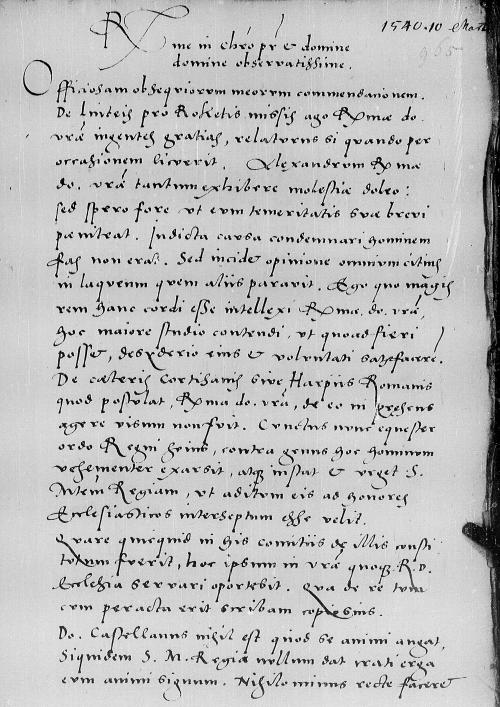 1540.10 Martii
965
Rme in Chro pr & domine
domine observatissime.
Officiosam obsequiorum meorum commendationem.
De linteis pro Roketis missis ago Rmae do.
vrae ingentes gratias, relaturus si quando per
occasionem licuerit. Alexandrum Rmae
do. vrae tantum exhibere molestiae doleo:
sed spero fore ut eum temeritatis suae brevi
paeniteat. Indicta causa condemnari hominem
fas non erat. Sed incidet opinione omnium citius
in laqueum quem aliis paravit. Ego quo magis
rem hanc cordi esse intellexi Rmae. do. vrae,
hoc maiore studio contendi, ut quoad fieri
posset, desyderio eius & voluntati satisfacere.
De caeteris Cortisanis sive Harpiis Romanis
quod postulat, Rma do. vra, de eo in praesens
agere visum non fuit. Cunctus nunc equester
ordo Regni huius, contra genus hoc hominum
vehementer exarsit, atque instat & urget S.
Mtem Regiam, ut aditum eis ad honores
Ecclesiasticos interseptum esse velit.
Quare quicquid in his comitiis de illis consti
tutum fuerit, hoc ipsum in vra quoque R. D.
Ecclesia servari oportebit. Qua de re tum
cum peracta erit scribam copiosius.
Do. Castellanus nihil est quod se animi angat,
siquidem S. M. Regia nullum dat irati erga
eum animi signum. Nihilominus recte faceret